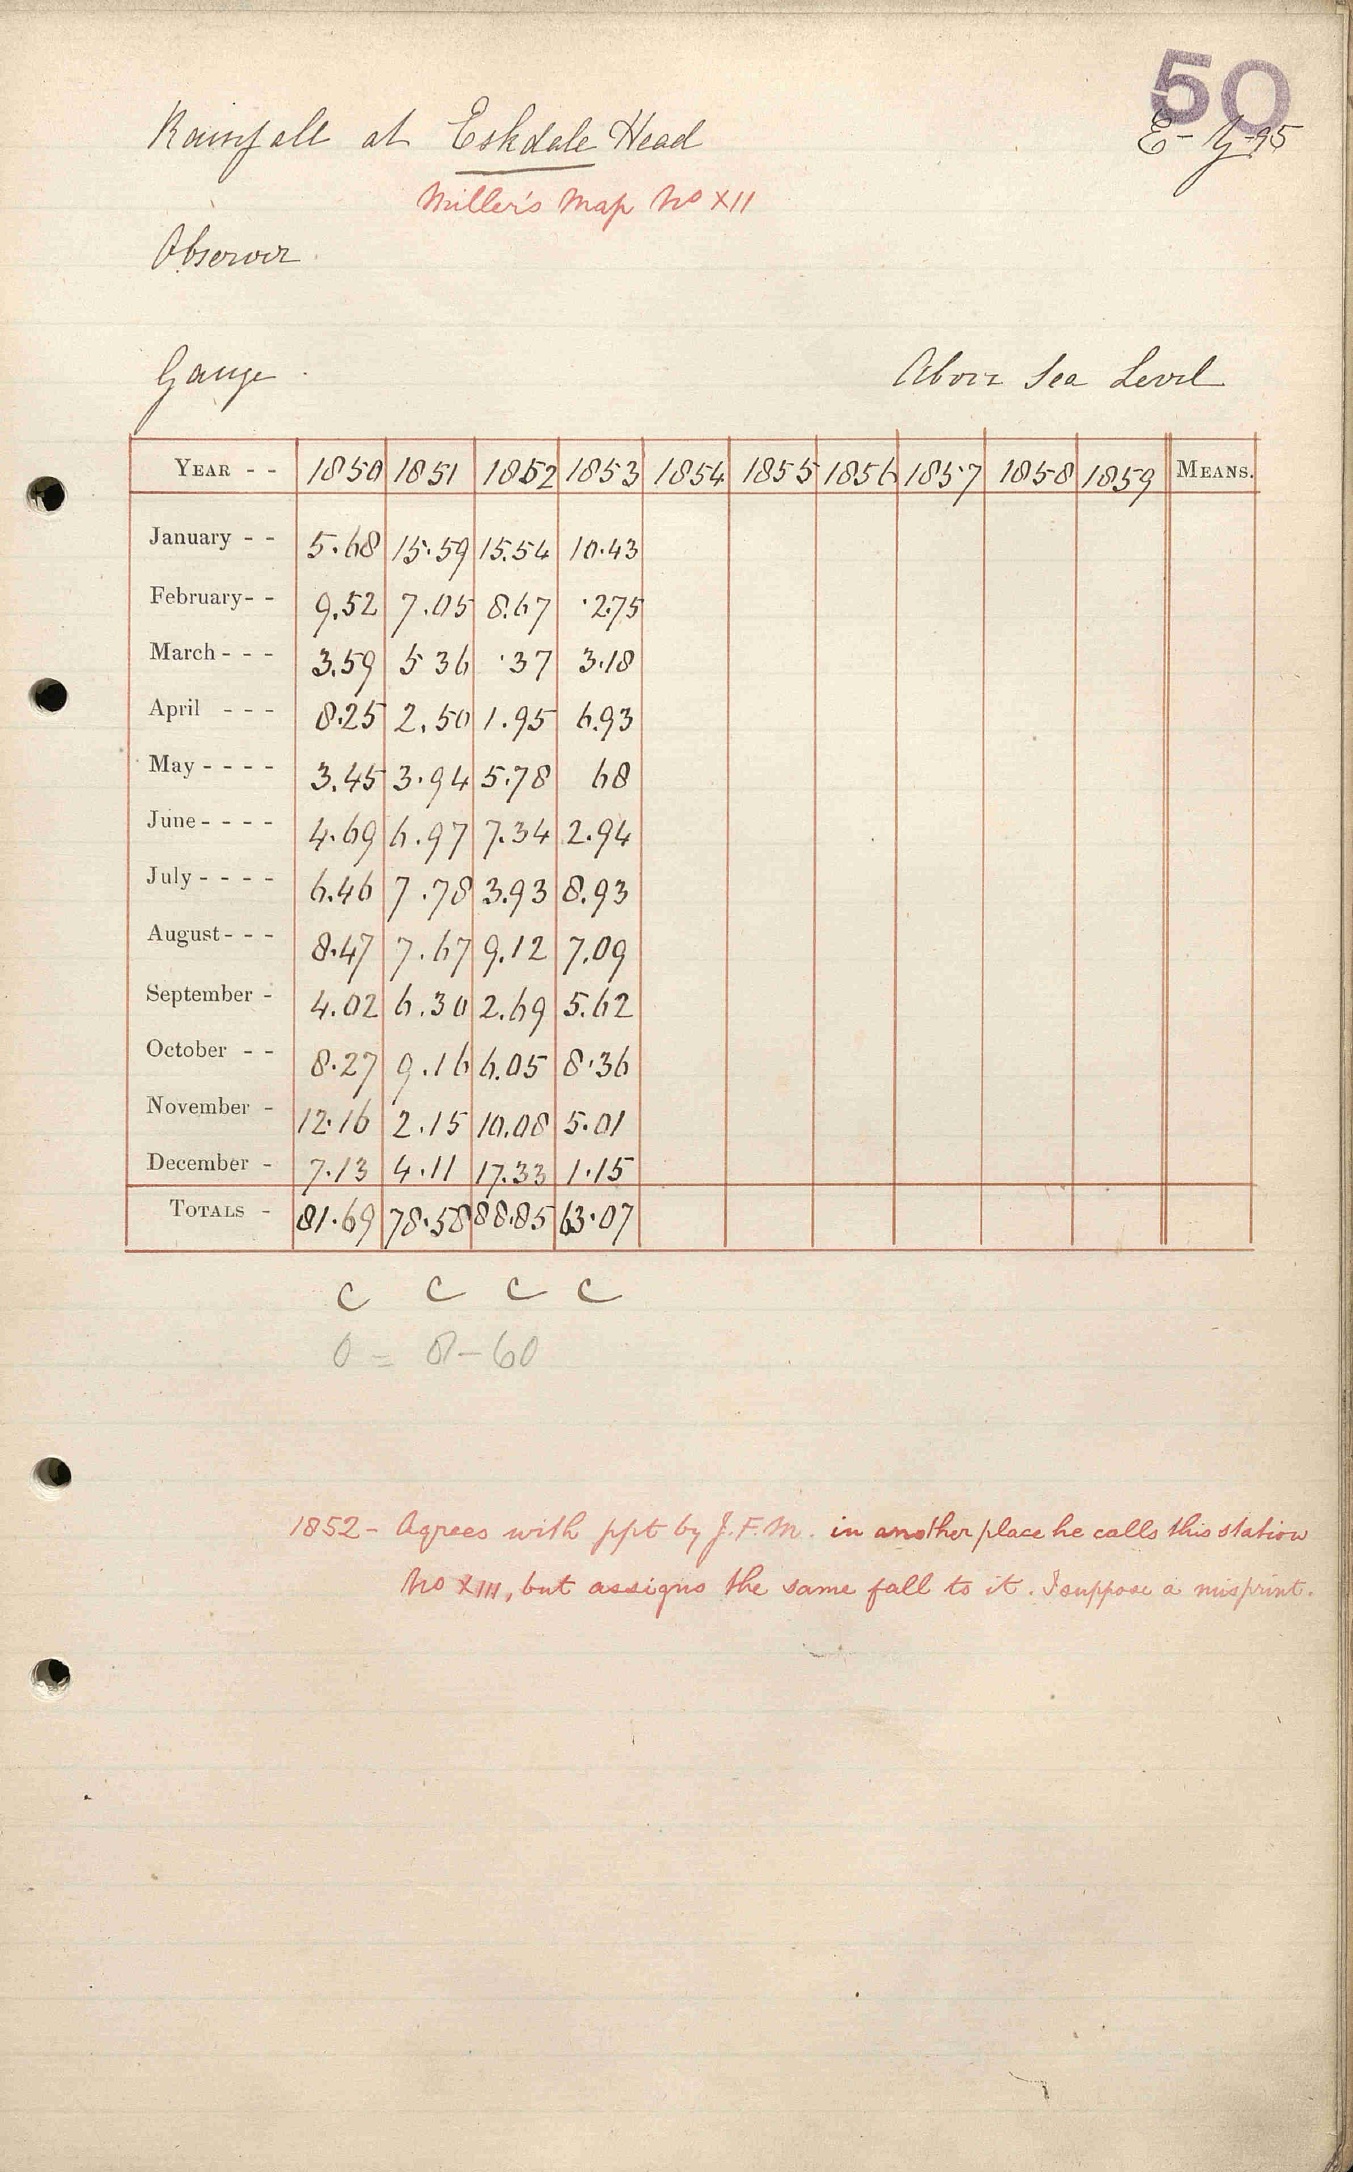 50
E - y-95
Rainfall at Eskdale Head
Miller's Map No XII
Observer
Gauge
Above Sea Level
YEAR - - 1850 1851 1852 1853 1854 1855 1856 1857 1858 1859 MEANS.
January - - 5.68 15.59 15.54 10.43
February - - 9.52 7.05 8.67 .275
March - - - 3.59 5 36 .37 3.18
April - - - 8.25 2.50 1.95 6.93
May - - - - 3.45 3.94 5.78 68
June - - - - 4.69 6.97 7.34 2.94
July - - - - 6.46 7.78 3.93 8.93
August - - - 8.47 7.67 9.12 7.09
September - 4.02 6.30 2.69 5.62
October - - 8.27 9.16 6.05 8.36
November - 12.16 2.15 10.08 5.01
December - 7.13 4.11 17.33 1.15
TOTALS - 81.69 78.58 88.85 63.07
C C C C
0 = 8-60
1852 - Agrees with ppt by J.F.M. in another place he calls this station
No XIII, but assigns the same fall to it. I suppose a misprint.